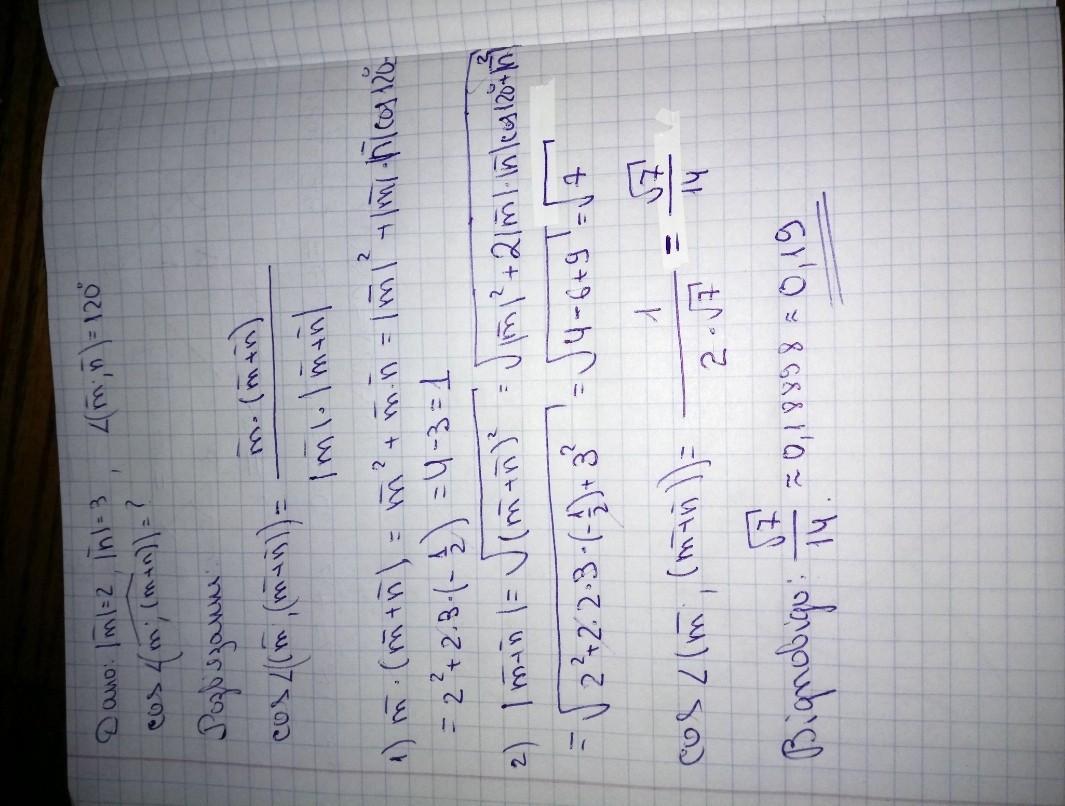 Дано: |m̅|=2, |n̅|=3, ∠(m̅; n̅)=120°
cos∠(m̅; (m̅+n̅))=?
Розв'язання:
cos∠((m̅; (m̅+n̅))= m̅·(m̅+n̅) / |m̅|·|m̅+n̅|
1) m̅·(m̅+n̅)=m̅²+m̅·n̅=|m̅|²+|m̅|·|n̅|cos120°
=2²+2·3·(-1/2)=4-3=1
2) |m̅+n̅|=√(m̅+n̅)² =√|m̅|²+2|m̅|·|n̅|cos120°+|n̅|²
=√2²+2·2·3·(-1/2)+3² =√4-6+9 =√7
cos∠(m̅; (m̅+n̅))= 1 / 2·√7 = √7 / 14
Відповідь: √7 / 14. ≈0,18898≈0,19